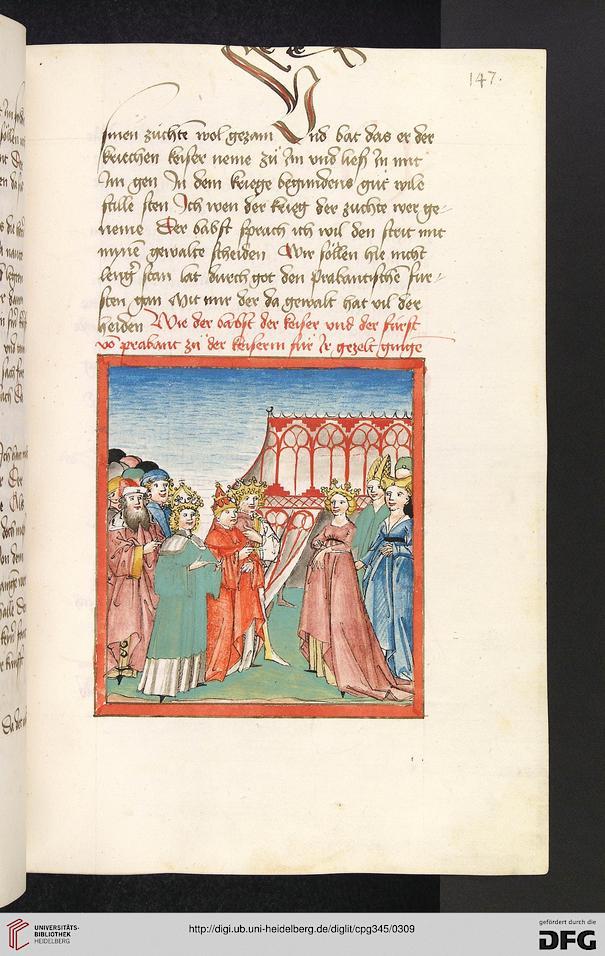 147.
synen züchte wol gezam Und bat das er der
kriechen keiser neme zü Im und ließ In mit
Im gen In dem kriege begundens gut wile
stille sten Ich wen der krieg der zuchte wer ge-
neme Der babst sprach ich wil den strit mit
mynē gewalte scheiden Wir söllen hie nicht
leng° stan lat durch got den prabantische für-
sten gan Mit mir der da gewalt hat vil der
heiden Wie der babst der keiser und der fürst
vō prabant zü der keiserin für Ir gezelt ginge
UNIVERSITÄTS-
BIBLIOTHEK
HEIDELBERG
http://digi.ub.uni-heidelberg.de/diglit/cpg345/0309
gefördert durch die
DFG